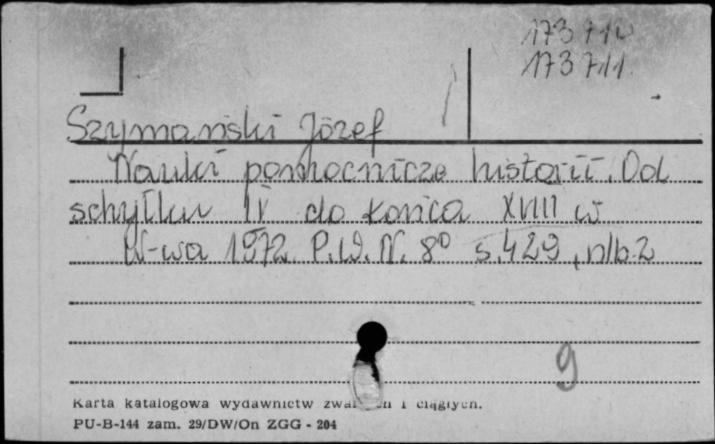 173710
173711
Szymański Józef
Nauki pomocnicze historii. Od
schyłku IV do końca XVIII w
W-wa 1972. P.W.N. 8° s. 429, nlb. 2
9
Karta katalogowa wydawnictw i ciągłych.
PU-B-144 zam. 29/DW/On ZGG - 204